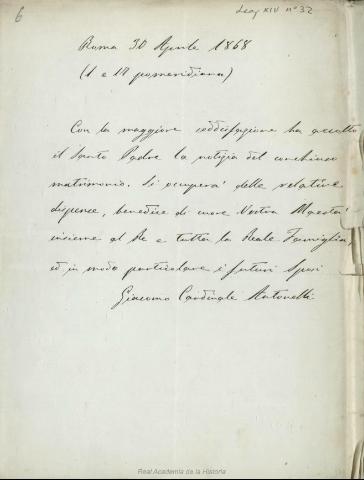 6
Leg XIV nº 32
Roma 30 Aprile 1868
(1 e 18 pomeridiana)
Con la maggiore soddisfazione ha accolto
il Santo Padre la notizia del conchiuso
matrimonio. Si occuperà delle relative
dispense, benedice di cuore Vostra Maestà
insieme al Re e tutta la Reale Famiglia,
ed in modo particolare i futuri Sposi
Giacomo Cardinale Antonelli
Real Academia de la Historia